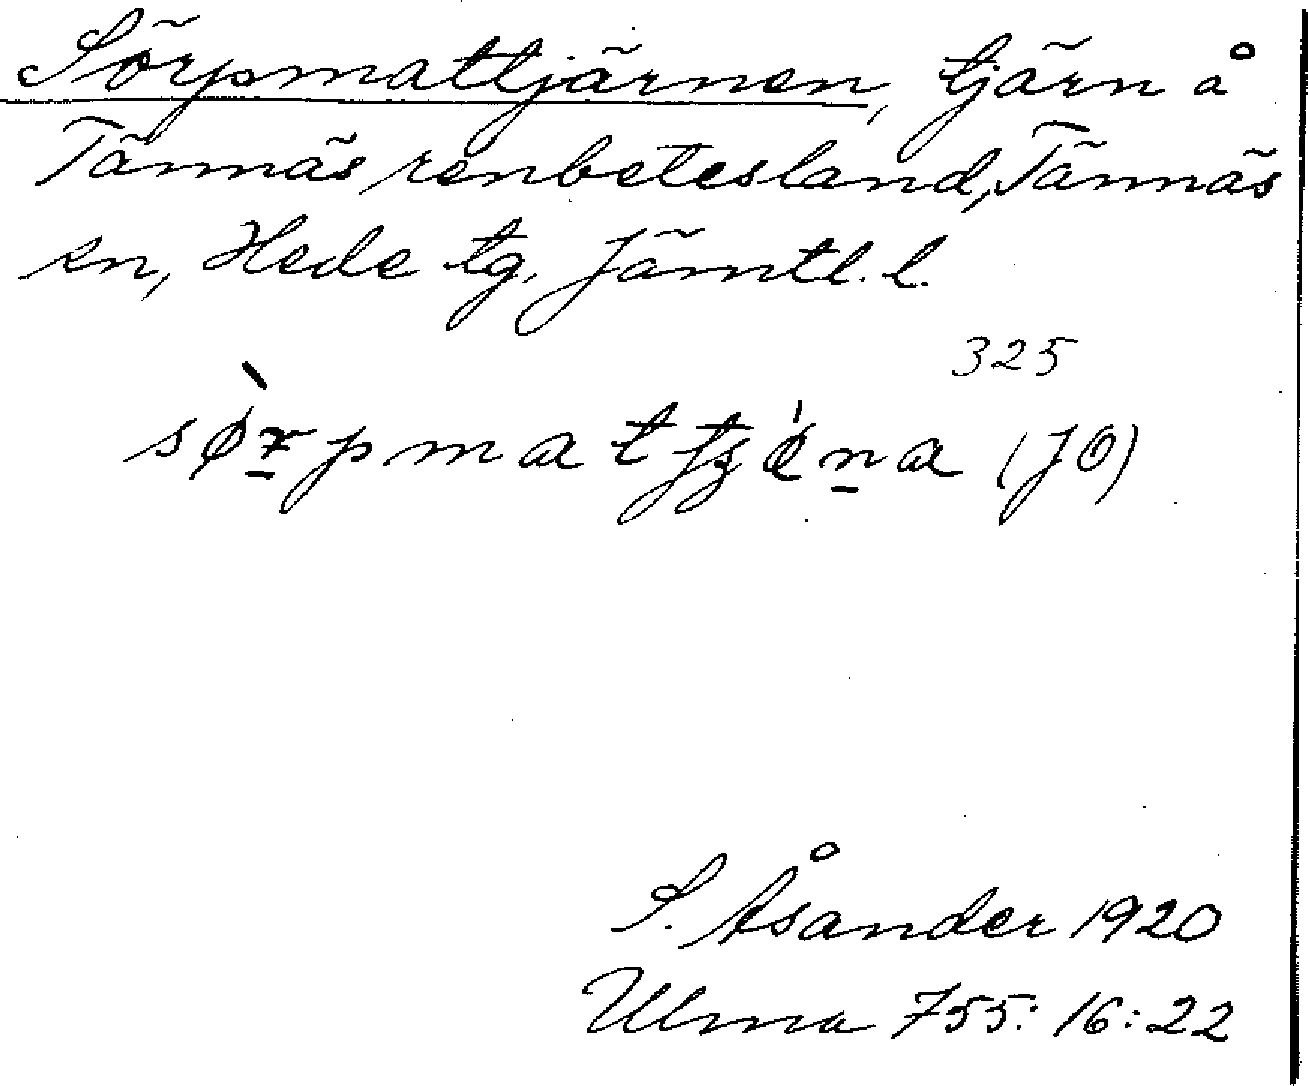 Sörpmattjärnen, tjärn å
Tännäs renbetesland, Tännäs
sn, Hede tg, Jämtl. l.
325
(JO)
S. Åsander 1920
Ulma 755: 16: 22